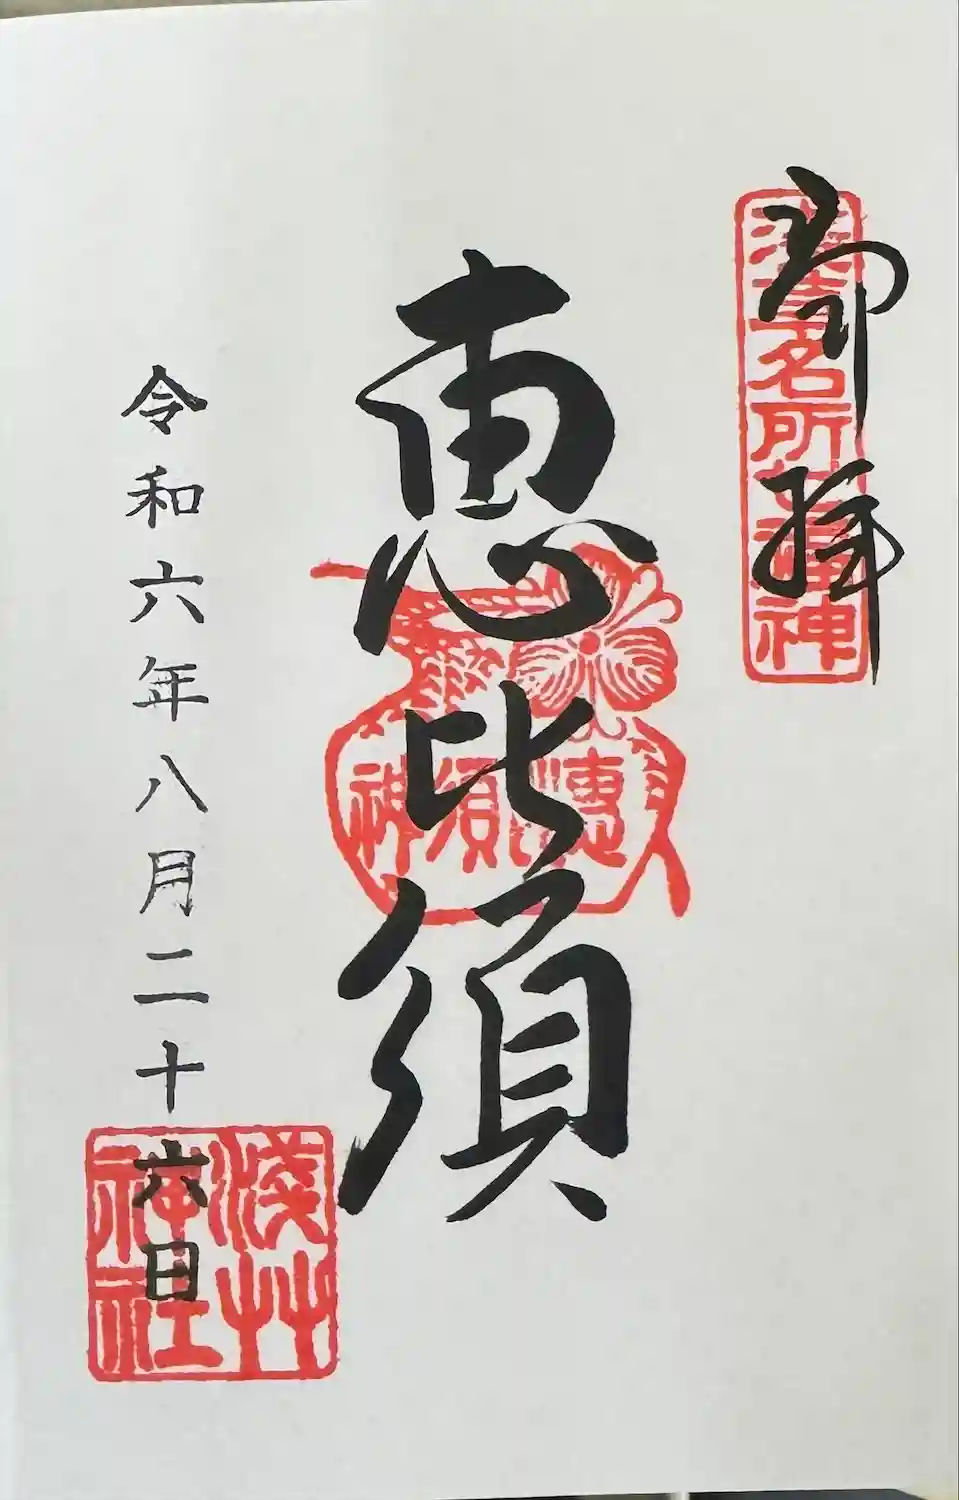 御拝
浅草名所七福神
恵比須
惠比須神
令和六年八月二十六日
淺艸
神社